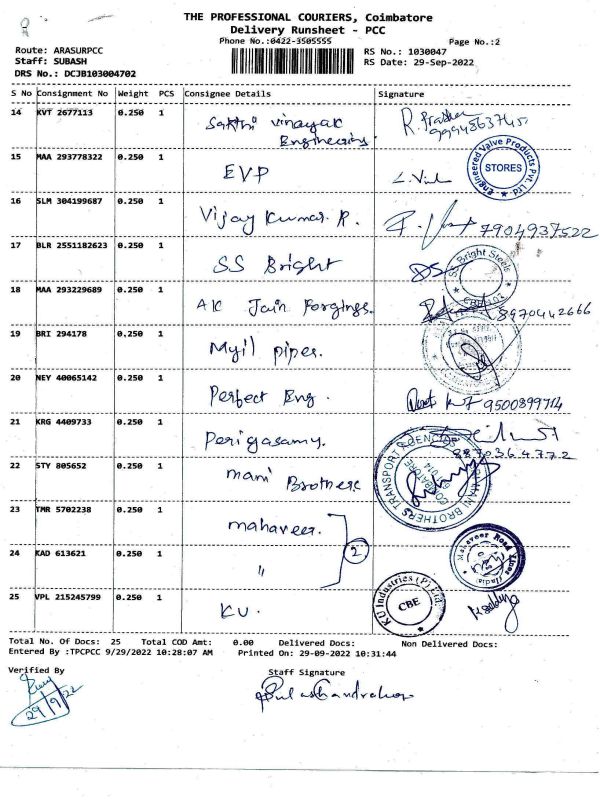 THE PROFESSIONAL COURIERS, Coimbatore
Delivery Runsheet - PCC
Phone No.:0422-3505555
Page No.:2
Route: ARASURPCC
RS No.: 1030047
Staff: SUBASH
RS Date: 29-Sep-2022
DRS No.: DCJB103004702
S No Consignment No Weight PCS Consignee Details Signature
14 KVT 2677113 0.250 1 Sakthi Vinayak Engineering
15 MAA 293778322 0.250 1 EVP
Engineered Valve Products Pvt. Ltd. STORES
16 SLM 304199687 0.250 1 Vijay Kumar. R. 7904937522
17 BLR 2551182623 0.250 1 SS Bright
SS Bright Steels
18 MAA 293229689 0.250 1 AK Jain Forgings. 8970442666
19 BRI 294178 0.250 1 Myil pipes.
20 NEY 40065142 0.250 1 Perfect Eng. 9500899714
21 KRG 4409733 0.250 1 Periyasamy. 8870364772
22 STY 805652 0.250 1 Mani Brothers
MANI BROTHERS TRANSPORT AGENCIES COIMBATORE
23 TMR 5702238 0.250 1 Mahaveer. 2
24 KAD 613621 0.250 1 "
25 VPL 215245799 0.250 1 KU.
KU Industries (P) Ltd CBE
Total No. Of Docs: 25 Total COD Amt: 0.00 Delivered Docs: Non Delivered Docs:
Entered By :TPCPCC 9/29/2022 10:28:07 AM Printed On: 29-09-2022 10:31:44
Verified By Staff Signature
29/9/22